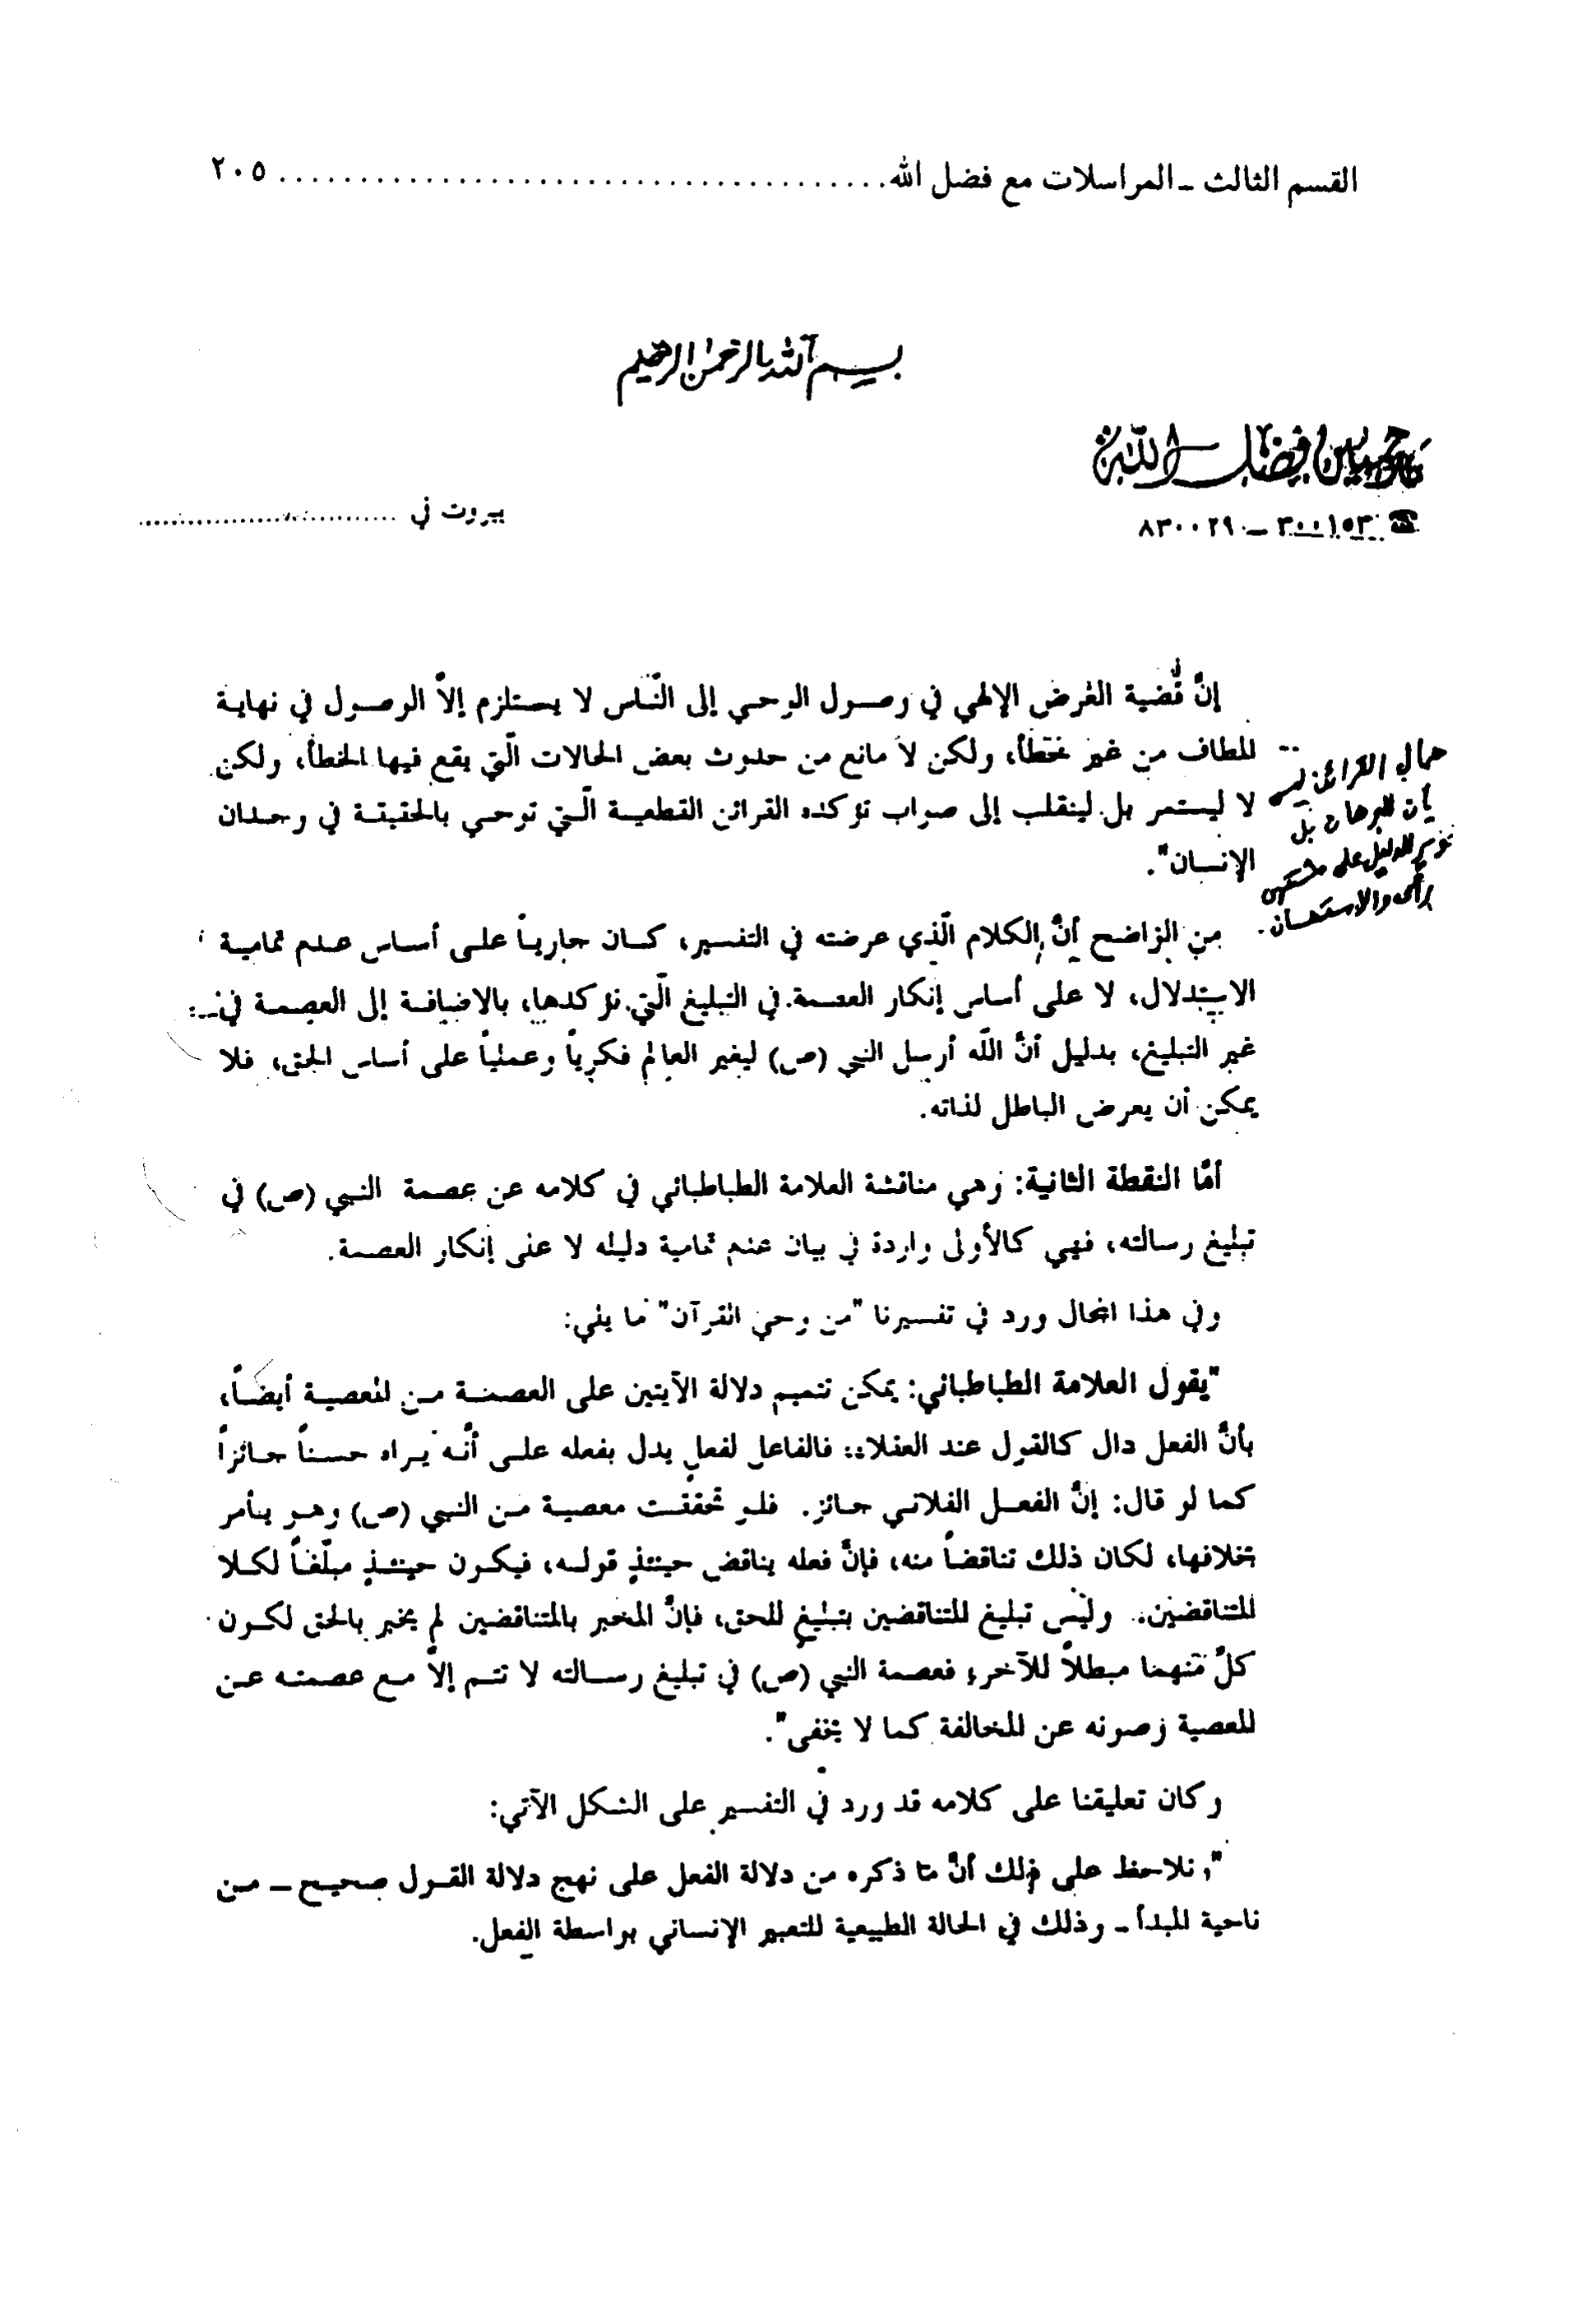 القسم الثالث ـ المراسلات مع فضل الله ........................................ ٢٠٥
بسم الله الرحمن الرحيم
محمد حسين فضل الله
☎ ٣٠٠١٥٣ – ٨٣٠٠٢٩٠
بيروت في ..............................
إنَّ قضية الغرض الإلهي في وصول الوحي إلى النّاس لا يستلزم إلاّ الوصول في نهاية
المطاف من غير خطأ، ولكن لا مانع من حدوث بعض الحالات الّتي يقع فيها الخطأ، ولكن
لا ليستمر بل لينقلب إلى صواب تؤكده القرائن القطعية الّتي توحي بالحقيقة في وجدان
الإنسان".
القرائن
بل
على
والاستحسان.
من الواضح أنَّ الكلام الّذي عرضته في التفسير، كان جارياً على أساس عدم تمامية
الاستدلال، لا على أساس إنكار العصمة في التبليغ الّتي نؤكدها، بالاضافة إلى العصمة في
غير التبليغ، بدليل أنَّ الله أرسل النبي (ص) ليغير العالم فكرياً وعملياً على أساس الحق، فلا
يمكن أن يعرض الباطل لذاته.
أمّا النقطة الثانية: وهي مناقشة العلامة الطباطبائي في كلامه عن عصمة النبي (ص) في
تبليغ رسالته، فهي كالأولى واردة في بيان عدم تمامية دليله لا على إنكار العصمة.
وفي هذا المجال ورد في تفسيرنا "من وحي القرآن" ما يلي:
"يقول العلامة الطباطبائي: يمكن تتميم دلالة الآيتين على العصمة من المعصية أيضاً،
بأنَّ الفعل دال كالقول عند العقلاء: فالفاعل لفعل يدل بفعله على أنَّه يراه حسناً جائزاً
كما لو قال: إنَّ الفعل الفلاني جائز. فلو تحققت معصية من النبي (ص) وهو يأمر
بخلافها، لكان ذلك تناقضاً منه، فإنَّ فعله يناقض حينئذٍ قوله، فيكون حينئذٍ مبلّغاً لكلا
المتناقضين.. وليس تبليغ المتناقضين بتبليغ للحق، فإنَّ المخبر بالمتناقضين لم يخبر بالحق لكون
كلّ منهما مبطلاً للآخر، فعصمة النبي (ص) في تبليغ رسالته لا تتم إلاّ مع عصمته عن
المعصية وصونه عن المخالفة كما لا يخفى".
وكان تعليقنا على كلامه قد ورد في التفسير على الشكل الآتي:
"ونلاحظ على ذلك أنَّ ما ذكره من دلالة الفعل على نهج دلالة القول صحيح – من
ناحية المبدأ – وذلك في الحالة الطبيعية للتعبير الإنساني بواسطة الفعل.